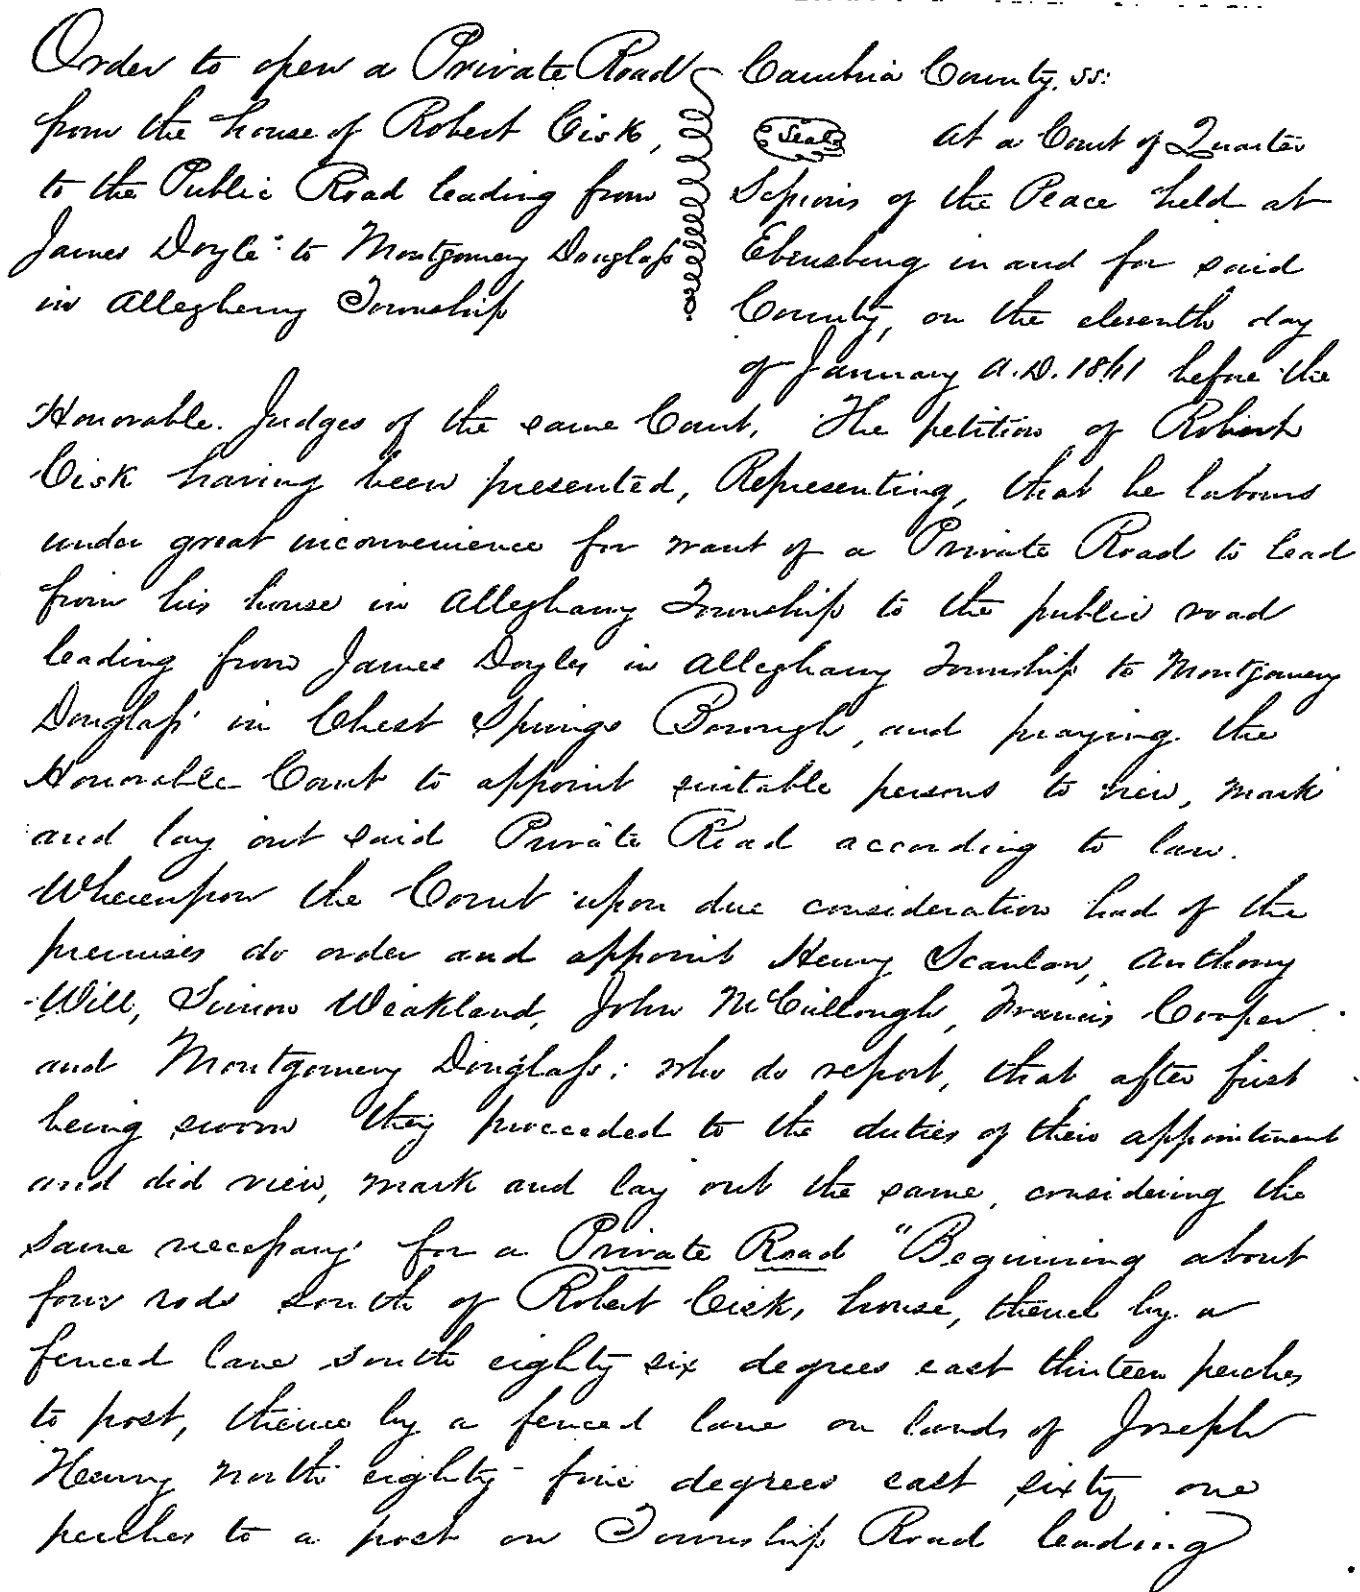 Order to open a Private Road
from the house of Robert Cisk,
to the Public Road leading from
James Doyle's to Montgomery Douglass
in Allegheny Township
Cambria County, ss:
Seal At a Court of Quarter
Sessions of the Peace held at
Ebensburg in and for said
County, on the eleventh day
of January A.D. 1861 before the
Honorable Judges of the same Court, The petition of Robert
Cisk having been presented, Representing, that he labours
under great inconvenience for want of a Private Road to lead
from his house in Alleghany Township to the public road
leading from James Doyles in Alleghany Township to Montgomery
Douglass' in Chest Springs Borough, and praying the
Honorable Court to appoint suitable persons to view, mark
and lay out said Private Road according to law.
Whereupon the Court upon due consideration had of the
premises do order and appoint Henry Scanlan, Anthony
Will, Simon Weakland, John McCullough, Francis Cooper
and Montgomery Douglass: who do report, that after first
being sworn they proceeded to the duties of their appointment
and did view, mark and lay out the same, considering the
same necessary for a Private Road "Beginning about
four rods south of Robert Cisk, house, thence by a
fenced lane south eighty six degrees east thirteen perches
to post, thence by a fenced lane on lands of Joseph
Henry north eighty-five degrees east sixty one
perches to a post on Township Road leading